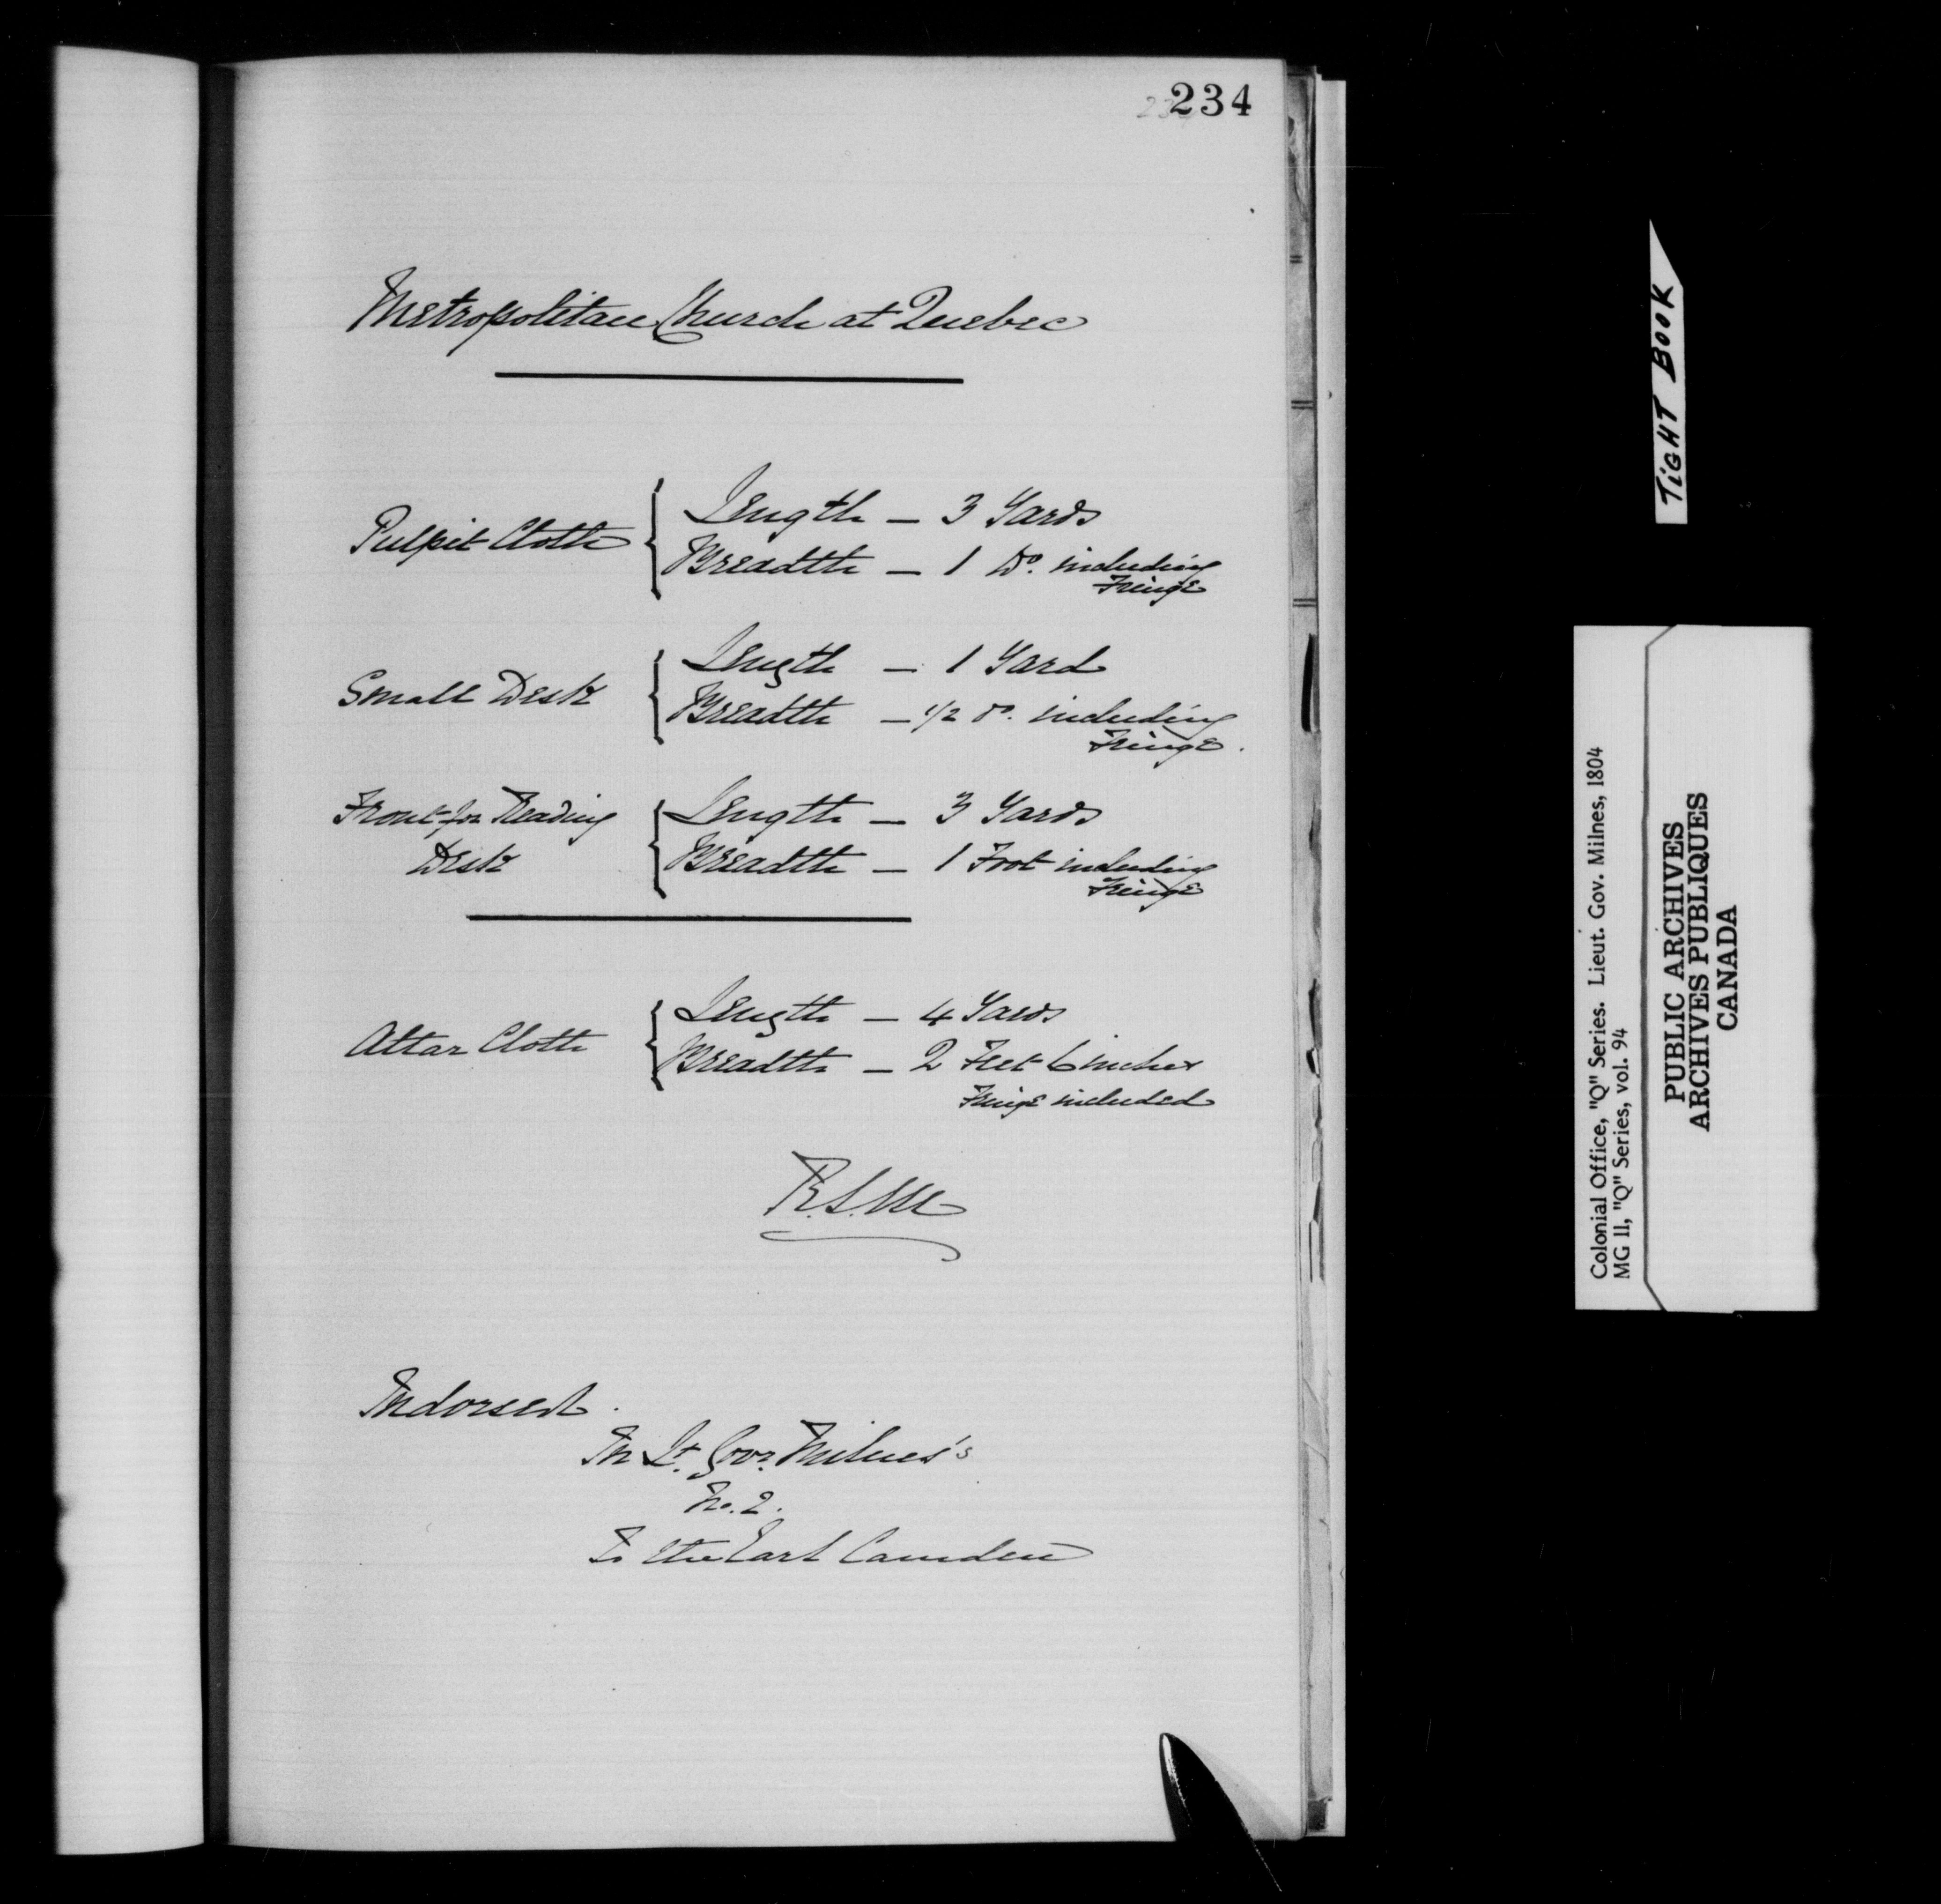 234
234
Metropolitan Church at Quebec
Pulpit Cloth { Length — 3 Yards
Breadth — 1 Do. including
Fringe
Small Desk { Length — 1 Yard
Breadth — 1/2 do. including
Fringe.
Front for Reading { Length — 3 Yards
Desk Breadth — 1 Foot including
Fringe
Altar Cloth { Length — 4 Yards
Breadth — 2 Feet 6 inches
Fringe included
R.S.M.
Indorsed.
In Lt. Govr. Milnes's
No. 2.
To the Earl Camden
TIGHT BOOK
Colonial Office, "Q" Series. Lieut. Gov. Milnes, 1804
MG 11, "Q" Series, vol. 94
PUBLIC ARCHIVES
ARCHIVES PUBLIQUES
CANADA